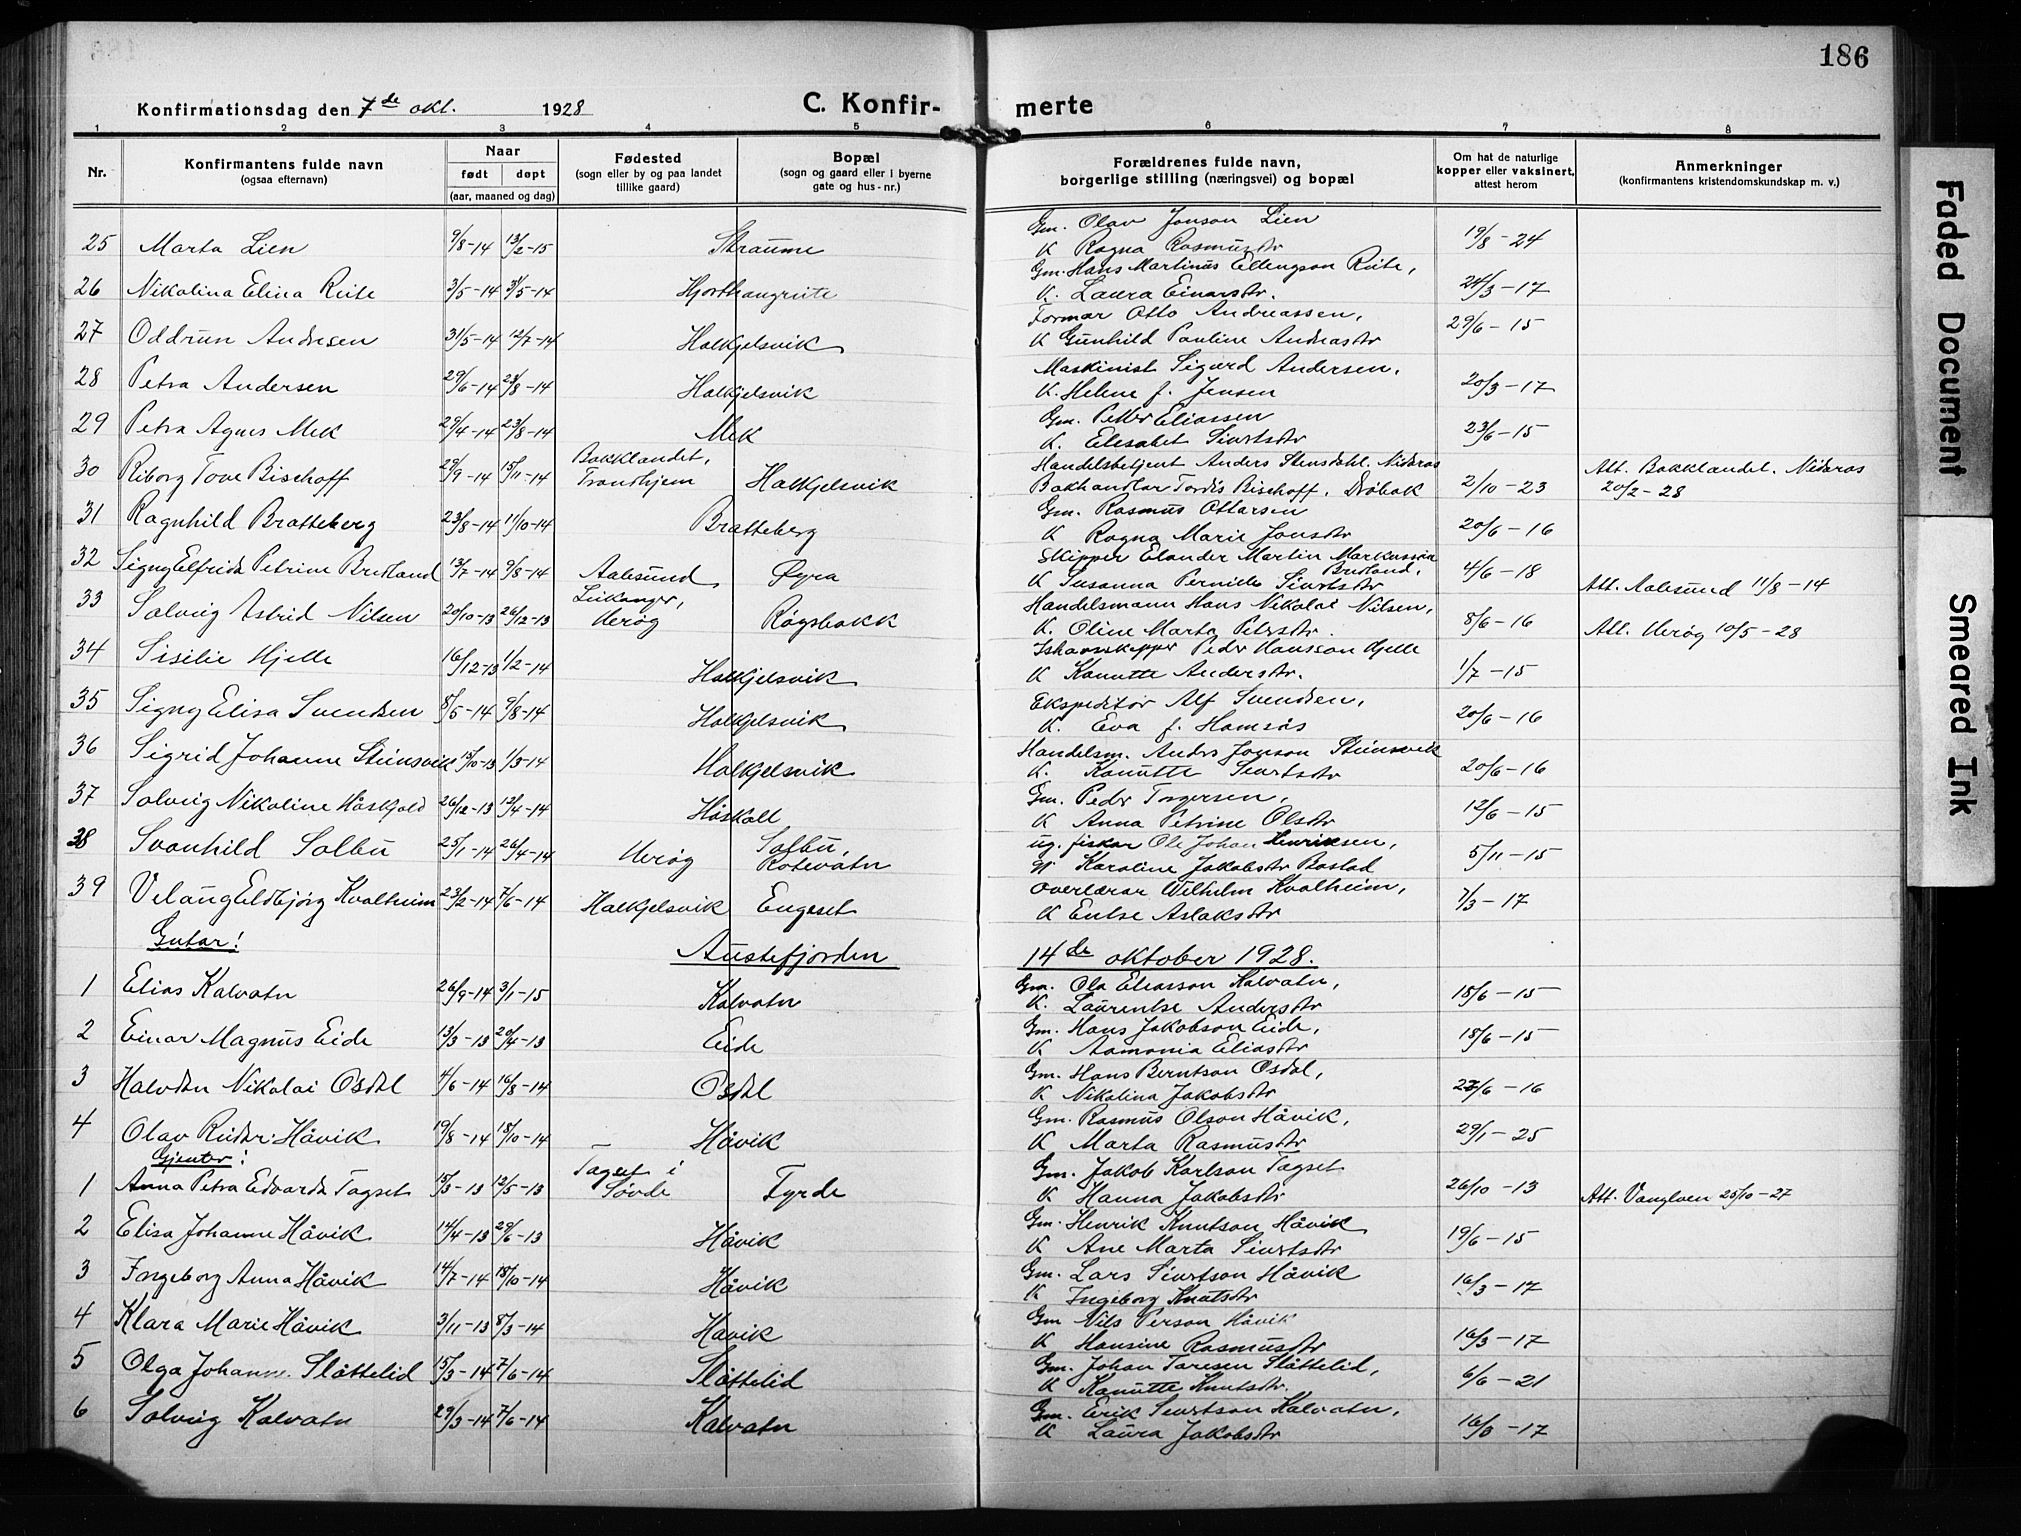 186
Konfirmationsdag den 7de okt. 1928
C. Konfir- merte
1 2 3 4 5 6 7 8
Nr.
Konfirmantens fulde navn
(ogsaa efternavn)
Naar
født døpt
(aar, maaned og dag)
Fødested
(sogn eller by og paa landet
tillike gaard)
Bopæl
(sogn og gaard eller i byerne
gate og hus-nr.)
Forældrenes fulde navn,
borgerlige stilling (næringsvei) og bopæl
Om hat de naturlige
kopper eller vaksinert,
attest herom
Anmerkninger
(konfirmantens kristendomskundskap m. v.)
25 Marta Lien 9/8-14 13/2-15 Straume Gm. Olav Jonson Lien
K Ragna Rasmusdtr 19/8-24
26 Nikolina Elina Riite 3/5-14 31/5-14 Hjorthaugriite Gm. Hans Martinus Ellengson Riite,
K. Laura Einarsdtr. 24/3-17
27 Oddrun Andresen 31/5-14 12/7-14 Halkjelsvik Formar Otto Andreassen,
K Gunhild Pauline Andreasdtr 29/6-15
28 Petra Andersen 29/6-14 23/8-14 Halkjelsvik Maskinist Sigurd Andersen,
K. Helene f. Jensen 20/3-17
29 Petra Agnes Mek 29/4-14 23/8-14 Mek Gm. Petter Eliassen
K. Elesabet Sivertsdtr 23/6-15
30 Riborg Tove Bischoff 29/9-14 15/11-14 Bakklandet,
Trondhjem Halkjelsvik Handelsbetjent Anders Stensdahl. Nidaros
Bokhandlar Tordis Bischoff, Drøbak 2/10-23 Att. Bakklandet. Nidaros
20/2-28
31 Ragnhild Bratteberg 23/8-14 11/10-14 Bratteberg Gm. Rasmus Ottarsen
K Ragna Marie Jonsdtr 20/6-16
32 Signy Elfrida Petrine Brudland 13/7-14 9/8-14 Aalesund Øyra Skipper Elander Martin Markussen
Brudland,
K Susanna Pernille Sivertsdtr 4/6-18 Att. Aalesund 11/8-14
33 Solvug Astrid Nilsen 20/10-13 26/12-13 Leikanger,
Herøy Røysbakk Handelsmann Hans Nikolai Nilsen,
K. Oline Marta Petersdtr. 8/6-16 Att. Herøy 10/5-28
34 Sisilie Hjelle 16/12-13 1/2-14 Halkjelsvik Ishavsskipper Peder Hansson Hjelle
K Kanutte Andersdtr. 1/7-15
35 Signy Elisa Svendsen 8/5-14 9/8-14 Halkjelsvik Ekspeditør Alf Svendsen,
K. Eva f. Hamsås 20/6-16
36 Sigrid Johanne Steinsvik 15/10-13 1/3-14 Halkjelsvik Handelsm. Anders Jonson Steinsvik
K. Kanutte Sivertsdtr 20/6-16
37 Solvug Nikoline Håskjold 26/12-13 13/4-14 Håskoll Gm. Peder Torgersen,
K Anna Petrine Olsdtr 12/6-15
38 Svanhild Solbu 25/1-14 26/4-14 Herøy Solbu,
Rotevatn ug. fiskar Ole Johan Henriksen,
gj Karoline Jakobsdtr Bostad 5/11-15
39 Velaug Eldbjørg Kvalheim 23/2-14 7/6-14 Halkjelsvik Engeset Overlærar Wilhelm Kvalheim,
K Entse Aslaksdtr 7/3-17
Gutar!
Austefjorden 14de oktober 1928.
1 Elias Kalvatn 26/9-14 3/1-15 Kalvatn Gm. Ola Eliasson Kalvatn,
K. Laurentse Andersdtr 18/6-15
2 Einar Magnus Eide 13/3-13 20/4-13 Eide Gm. Hans Jakobson Eide,
K Aamonia Eliasdtr 18/6-15
3 Halvdan Nikolai Osdal 4/6-14 16/8-14 Osdal Gm. Hans Berntson Osdal,
K Nikolina Jakobsdtr 27/6-16
4 Olav Reidar Håvik 19/8-14 18/10-14 — Håvik Gm. Rasmus Olson Håvik,
K Marta Rasmusdtr 29/1-25
Gjentor!
1 Anna Petra Edvarda Tagset 15/3-13 12/5-13 Tagset i
Søvde Fyrde Gm. Jakob Karlson Tagset
K Hanna Jakobsdtr 26/10-13 Att. Vanylven 25/10-27
2 Elisa Johanne Håvik 14/4-13 29/6-13 Håvik Gm. Henrik Knutson Håvik
K Ane Marta Sivertsdtr 19/6-15
3 Ingeborg Anna Håvik 14/7-14 18/10-14 Håvik Gm. Lars Sivertson Håvik
K Ingeborg Knutsdtr 16/3-17
4 Klara Marie Håvik 3/11-13 8/3-14 Håvik Gm Nils Person Håvik
K Hansine Rasmusdtr 16/3-17
5 Olga Johanne Slåttelid 15/3-14 7/6-14 Slåttelid Gm. Johan Taresen Slåttelid,
K Kanutte Knutsdtr. 6/6-21
6 Solvug Kalvatn 29/3-14 7/6-14 Kalvatn Gm. Erik Sivertson Kalvatn,
K Laura Jakobsdtr 16/3-17
Faded Document
Smeared Ink